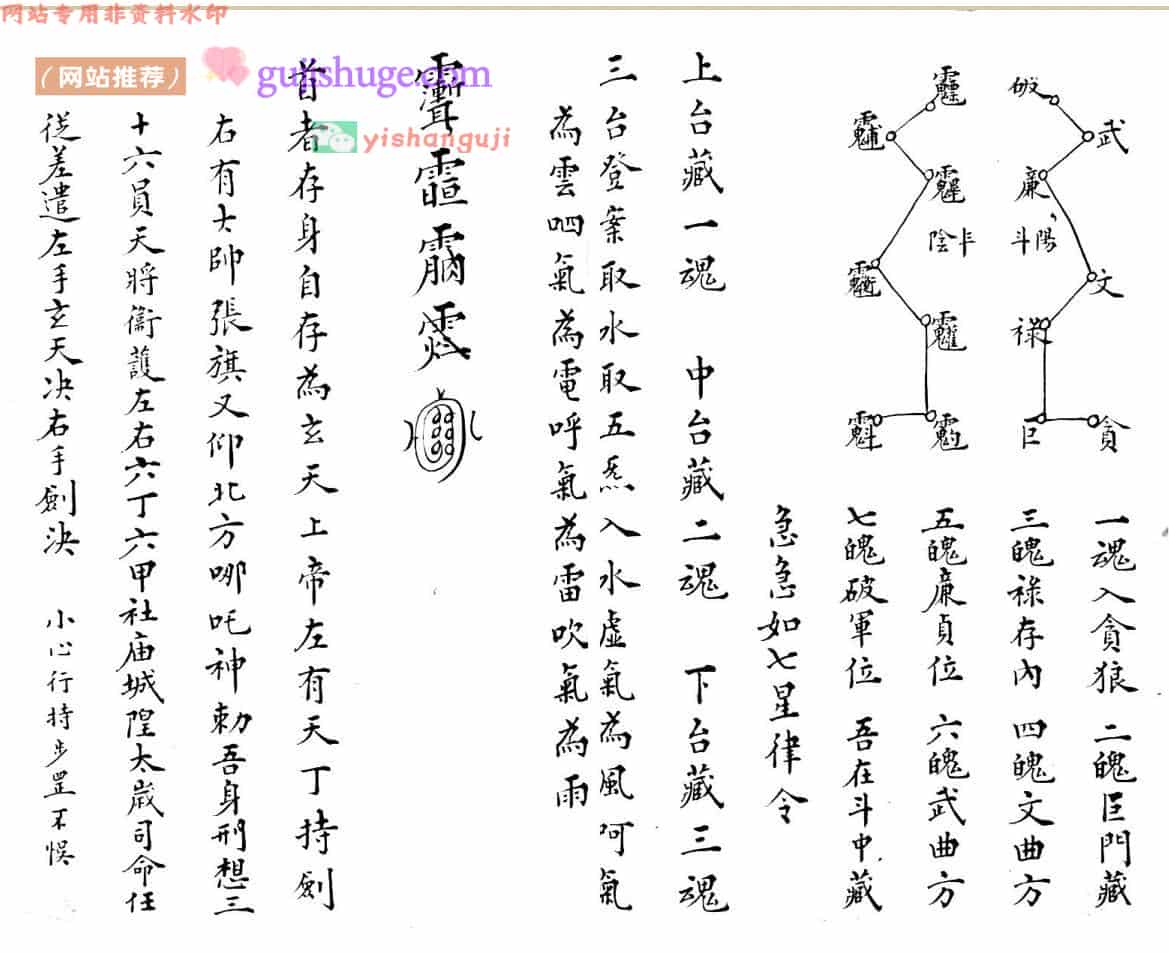 网站专用非资料水印
（网站推荐）
gujishuge.com
yishanguji
破
武
廉
陽斗
文
祿
巨
貪
陰斗
一魂入貪狼 二魄巨門藏
三魄祿存內 四魄文曲方
五魄廉貞位 六魄武曲方
七魄破軍位 吾在斗中藏
急急如七星律令
上台藏一魂 中台藏二魂 下台藏三魂
三台登案取水取五炁入水虛氣為風呵氣
為雲呬氣為電呼氣為雷吹氣為雨
首者存身自存為玄天上帝左有天丁持劍
右有大帥張旗又仰北方哪吒神勅吾身刑想三
十六員天將衞護左右六丁六甲社庙城隍太歲司命任
從差遣左手玄天决右手劍决 小心行持步罡不悞